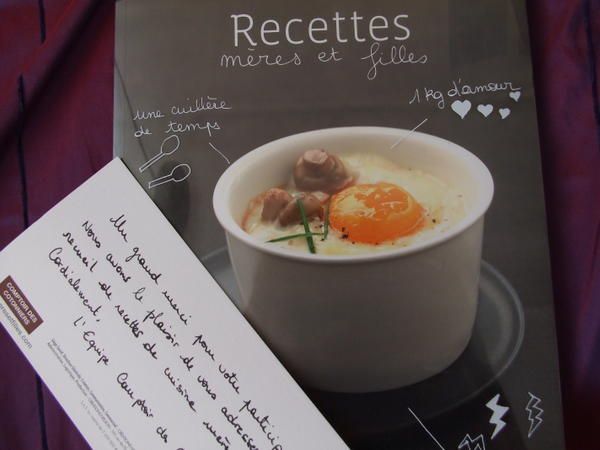 Recettes
mères et filles
une cuillère
de temps
1 kg d'amour
Un grand merci pour votre particip
Nous avons le plaisir de vous adresser
recueil de recettes de cuisine mère
Cordialement,
L'Equipe Comptoir des
COMPTOIR DES
COTONNIERS